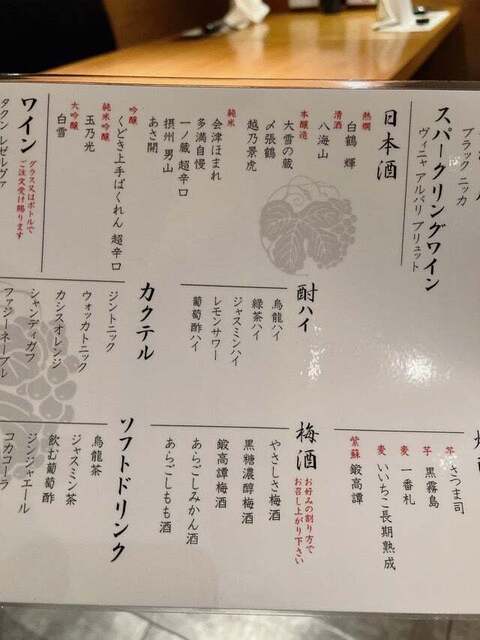 ブラックニッカ
スパークリングワイン
ヴィニャ アルバリ ブリュット
日本酒
熱燗
白鶴 輝
清酒
八海山
本醸造
大雪の蔵
〆張鶴
越乃景虎
純米
会津ほまれ
多満自慢
一ノ蔵 超辛口
摂州 男山
あさ開
吟醸
くどき上手ばくれん 超辛口
純米吟醸
玉乃光
大吟醸
白雪
ワイン
グラス又はボトルで
ご注文受け賜ります
タクン レゼルヴァ
酎ハイ
烏龍ハイ
緑茶ハイ
ジャスミンハイ
レモンサワー
葡萄酢ハイ
カクテル
ジントニック
ウォッカトニック
カシスオレンジ
シャンディガフ
ファジーネーブル
芋 さつま司
芋 黒霧島
麦 一番札
麦 いいちこ長期熟成
紫蘇 鍛高譚
梅酒
お好みの割り方で
お召し上がり下さい
やさしさ梅酒
黒糖濃醇梅酒
鍛高譚梅酒
あらごしみかん酒
あらごしもも酒
ソフトドリンク
烏龍茶
ジャスミン茶
飲む葡萄酢
ジンジャエール
コカコーラ